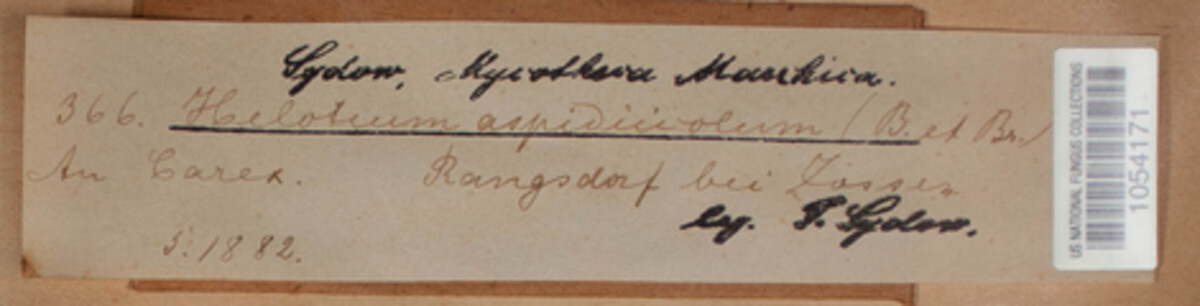 Sydow, Mycotheca Marchica.
366. Helotium aspidiicolum (B. et Br.)
An Carex. Rangsdorf bei Zossen
leg. P. Sydow.
5. 1882.
US NATIONAL FUNGUS COLLECTIONS
1054171